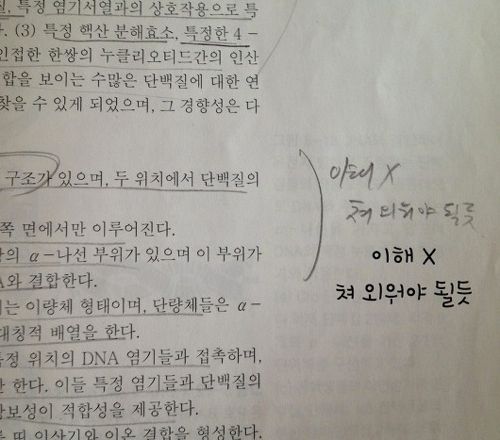 실, 특정 염기서열과의 상호작용으로 특
다. (3) 특정 핵산 분해효소, 특정한 4-
인접한 한쌍의 누클리오티드간의 인산
합을 보이는 수많은 단백질에 대한 연
찾을 수 있게 되었으며, 그 경향성은 다
구조가 있으며, 두 위치에서 단백질의
쪽 면에서만 이루어진다.
의 α-나선 부위가 있으며 이 부위가
A와 결합한다.
는 이량체 형태이며, 단량체들은 α-
대칭적 배열을 한다.
특정 위치의 DNA 염기들과 접촉하며,
한다. 이들 특정 염기들과 단백질의
상보성이 적합성을 제공한다.
띤 인산기와 이온 결합을 형성한다.
이해 X
쳐 외워야 될듯
이해 X
쳐 외워야 될듯